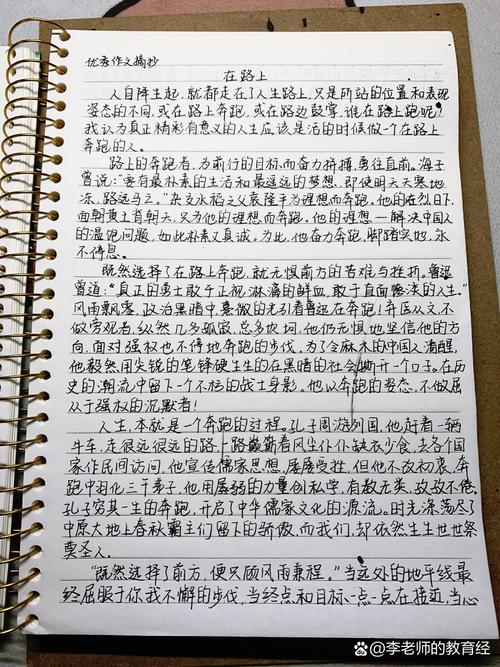 优秀作文摘抄
在路上
人自降生起,就都走在了人生路上,只是所站的位置和表现
姿态的不同,或在路上奔跑,或在路边鼓掌,谁在路上跑呢?
我认为真正精彩有意义的人生应该是活的时候做一个在路上
奔跑的人。
路上的奔跑者,为前行的目标而奋力拼搏,勇往直前。海子
曾说:“要有最朴素的生活和最遥远的梦想,即使明天天寒地
冻,路远马亡。”杂交水稻之父袁隆平为理想而奔跑。他的在烈日下,
面朝黄土背朝天,只为他的理想而奔跑。他的理想—解决中国人
的温跑问题,如此朴素又真诚,为此,他奋力奔跑,脚踏实地,永
不停息。
既然选择了在路上奔跑,就无惧前方的苦难与挫折。鲁迅
曾道:“真正的勇士敢于正视淋漓的鲜血,敢于直面惨淡的人生。”
风雨飘零,政治黑暗中,熹微的光引着鲁迅在奔跑,弃医从文,不
做旁观者,纵然几多孤寂,总多坎坷,他仍无惧地坚信他的方
向,面对强权也不停地奔跑的步伐。为了令麻木的中国人清醒,
他毅然用尖锐的笔锋硬生生的在黑暗的社会撕开一个口子。在历
史的潮流中留下一个不朽的战士身影。他以奔跑的姿态,不做屈
从于强权的沉默者!
人生,本就是一个奔跑的过程。孔子周游列国,他赶着一辆
牛车,走很远很远的路,一路巅簸着风尘仆仆缺衣少食,去各个国
家作民间访问,他宣传儒家思想,屡屡受挫,但他不改初衷,奔
跑中羽化三千弟子,他用孱弱的力量创私学,有教无类,孜孜不倦。
孔子穷其一生的奔跑,开启了中华儒家文化的源流。时光涤荡尽了
中原大地上春秋霸主们留下的骄傲,而我们,却依然生生世世祭
奠圣人。
“既然选择了前方,便只顾风雨兼程。”当远处的地平线最
终屈服于你我不懈的步伐,当终点和目标一点一点在接近,当心
@李老师的教育经